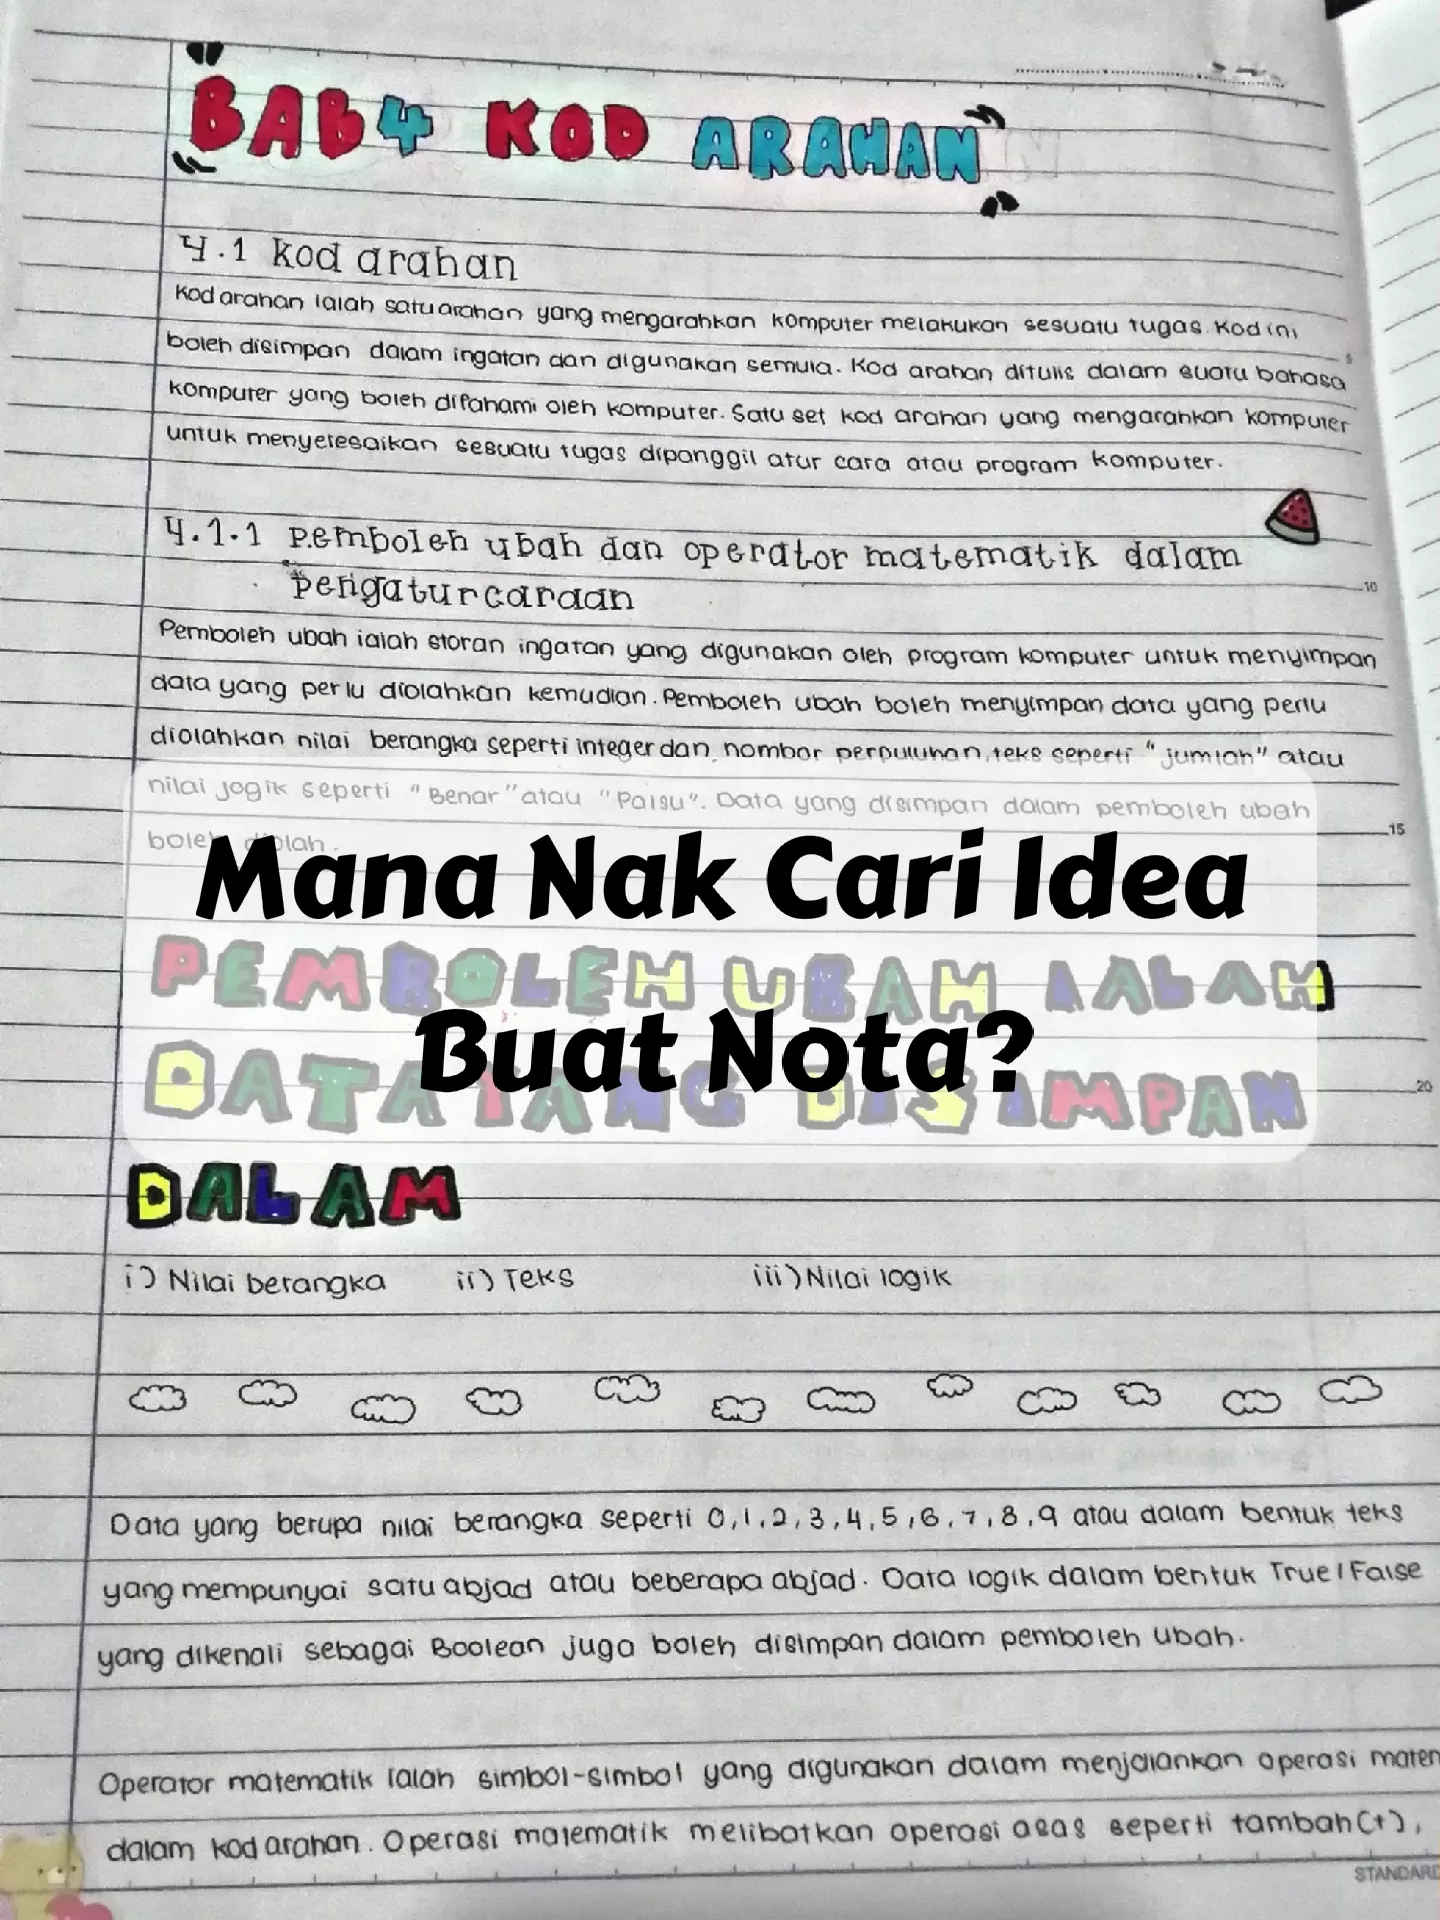 BAB 4 KOD ARAHAN
4.1 kod arahan
Kod arahan ialah satu arahan yang mengarahkan komputer melakukan sesuatu tugas. Kod ini
boleh disimpan dalam ingatan dan digunakan semula. Kod arahan ditulis dalam suatu bahasa
komputer yang boleh difahami oleh komputer. Satu set kod arahan yang mengarahkan komputer
untuk menyelesaikan sesuatu tugas dipanggil atur cara atau program komputer.
4.1.1 Pemboleh ubah dan operator matematik dalam
pengaturcaraan
Pemboleh ubah ialah storan ingatan yang digunakan oleh program komputer untuk menyimpan
data yang perlu diolahkan kemudian. Pemboleh ubah boleh menyimpan data yang perlu
diolahkan nilai berangka seperti integer dan nombor perpuluhan, teks seperti "jumlah" atau
nilai logik seperti "Benar" atau "Palsu". Data yang disimpan dalam pemboleh ubah
boleh diolah.
Mana Nak Cari Idea
PEMBOLEH UBAH IALAH
Buat Nota?
DATA YANG DISIMPAN
DALAM
i) Nilai berangka ii) Teks iii) Nilai logik
Data yang berupa nilai berangka seperti 0,1,2,3,4,5,6,7,8,9 atau dalam bentuk teks
yang mempunyai satu abjad atau beberapa abjad. Data logik dalam bentuk True/False
yang dikenali sebagai Boolean juga boleh disimpan dalam pemboleh ubah.
Operator matematik ialah simbol-simbol yang digunakan dalam menjalankan operasi matem
dalam kod arahan. Operasi matematik melibatkan operasi asas seperti tambah(+),
5
10
15
20
STANDARD